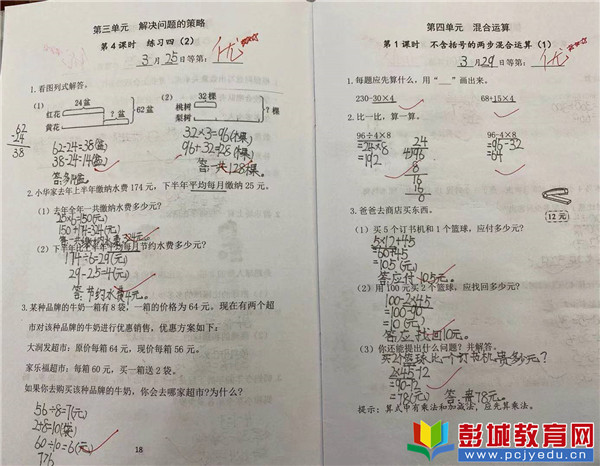 第三单元 解决问题的策略
第4课时 练习四(2)
3月25日等第:优
1.看图列式解答。
(1)
24盆
红花
?盆
62盆
黄花
62
-24
38
62-24=38(盆)
38-24=14(盆)
(2)
32棵
桃树
梨树
?棵
32×3=96(棵)
96+32=128(棵)
答:一共128棵。
2.小华家去年上半年缴纳水费174元,下半年平均每月缴纳25元。
(1)去年全年一共缴纳水费多少元?
25×6=150(元)
(2)下半年比上半年平均每月节约水费多少元?
174÷6=29(元)
29-25=4(元)
答:节约水费4元。
3.某种品牌的牛奶一箱有8袋,一箱的价格为64元。现在有两个超
市对该种品牌的牛奶进行优惠销售,优惠方案如下:
大润发超市:原价每箱64元,现价每箱56元。
家乐福超市:每箱60元,买一箱送2袋。
如果你去购买该种品牌的牛奶,你会去哪家超市?为什么?
56÷8=7(元)
2+8=10(袋)
60÷10=6(元)
7>6
18
第四单元 混合运算
第1课时 不含括号的两步混合运算(1)
3月29日等第:优
1.每题应先算什么,用“__”画出来。
230-30×4
68+15×4
2.比一比,算一算。
96÷4×8
=24×8
=192
24
4)96
8
16
16
0
96-4×8
=96-32
=64
3.爸爸去商店买东西。
12元
(1)买5个订书机和1个篮球,应付多少元?
5×12+45
=60+45
=105(元)
答:应付105元。
(2)用100元买2个篮球,应找回多少元?
100-2×45
=100-90
=10(元)
答:应找回10元。
(3)你还能提出什么问题?并解答。
买2个篮球比一个订书机贵多少元?
2×45-12
=90-12
=78(元)
答:贵78元。
提示:算式中有乘法和加减法,应先算乘法。
彭城教育网
www.pcjyedu.cn